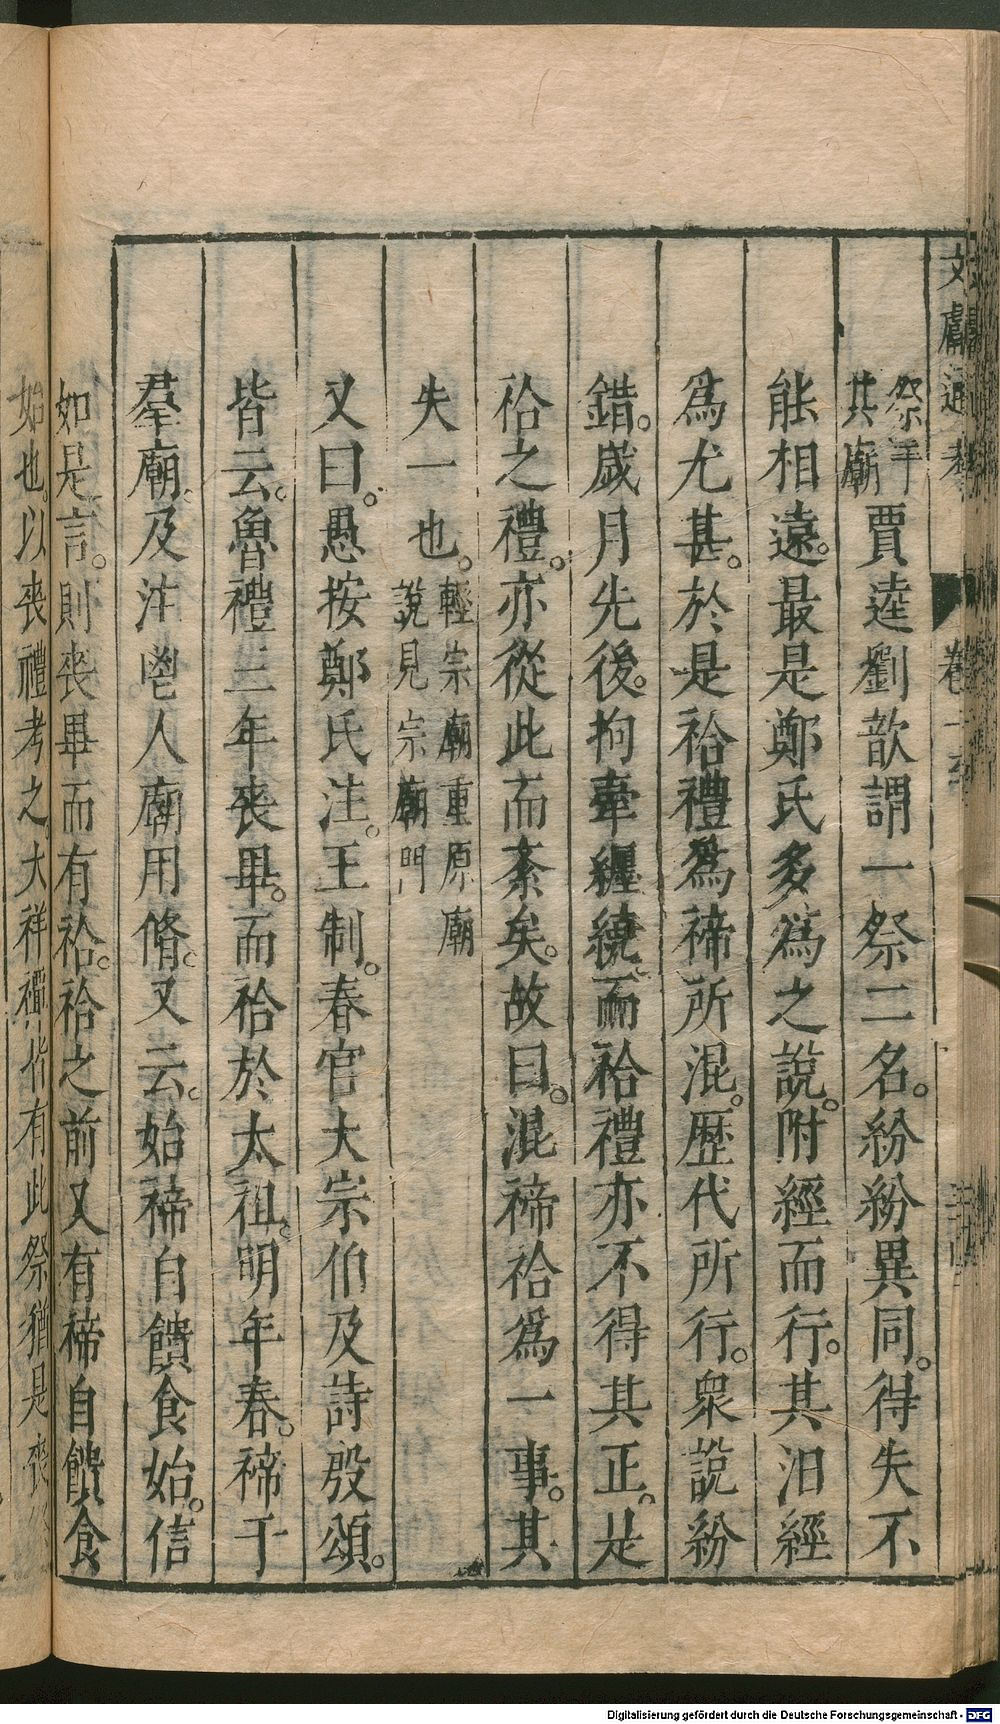 文獻通考 卷一
祭年
其廟
賈逵劉歆謂一祭二名。紛紛異同。得失不
能相遠。最是鄭氏多爲之說。附經而行。其汨經
爲尤甚。於是祫禮爲禘所混。歷代所行。衆說紛
錯。歲月先後。拘牽纒繞。而祫禮亦不得其正。是
祫之禮。亦從此而紊矣。故曰。混禘祫爲一事。其
失一也。
輕宗廟重原廟
說見宗廟門
又曰。愚按鄭氏注。王制。春官大宗伯及詩殷頌。
皆云。魯禮三年喪畢。而祫於太祖。明年春。禘于
羣廟。及注鬯人廟用脩。又云。始禘自饋食始。信
如是言。則喪畢而有祫。祫之前又有禘自饋食
始也。以喪禮考之。大祥禫皆有此祭猶是喪
Digitalisierung gefördert durch die Deutsche Forschungsgemeinschaft - DFG